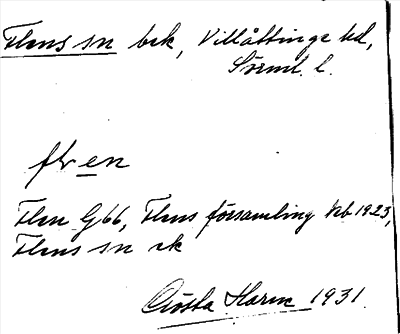 Flens sn bek, Villåttinge hd,
Sörml. l.
flen
Flen G66, Flens församling Kb 1923,
Flens sn ek
Gösta Harm 1931.